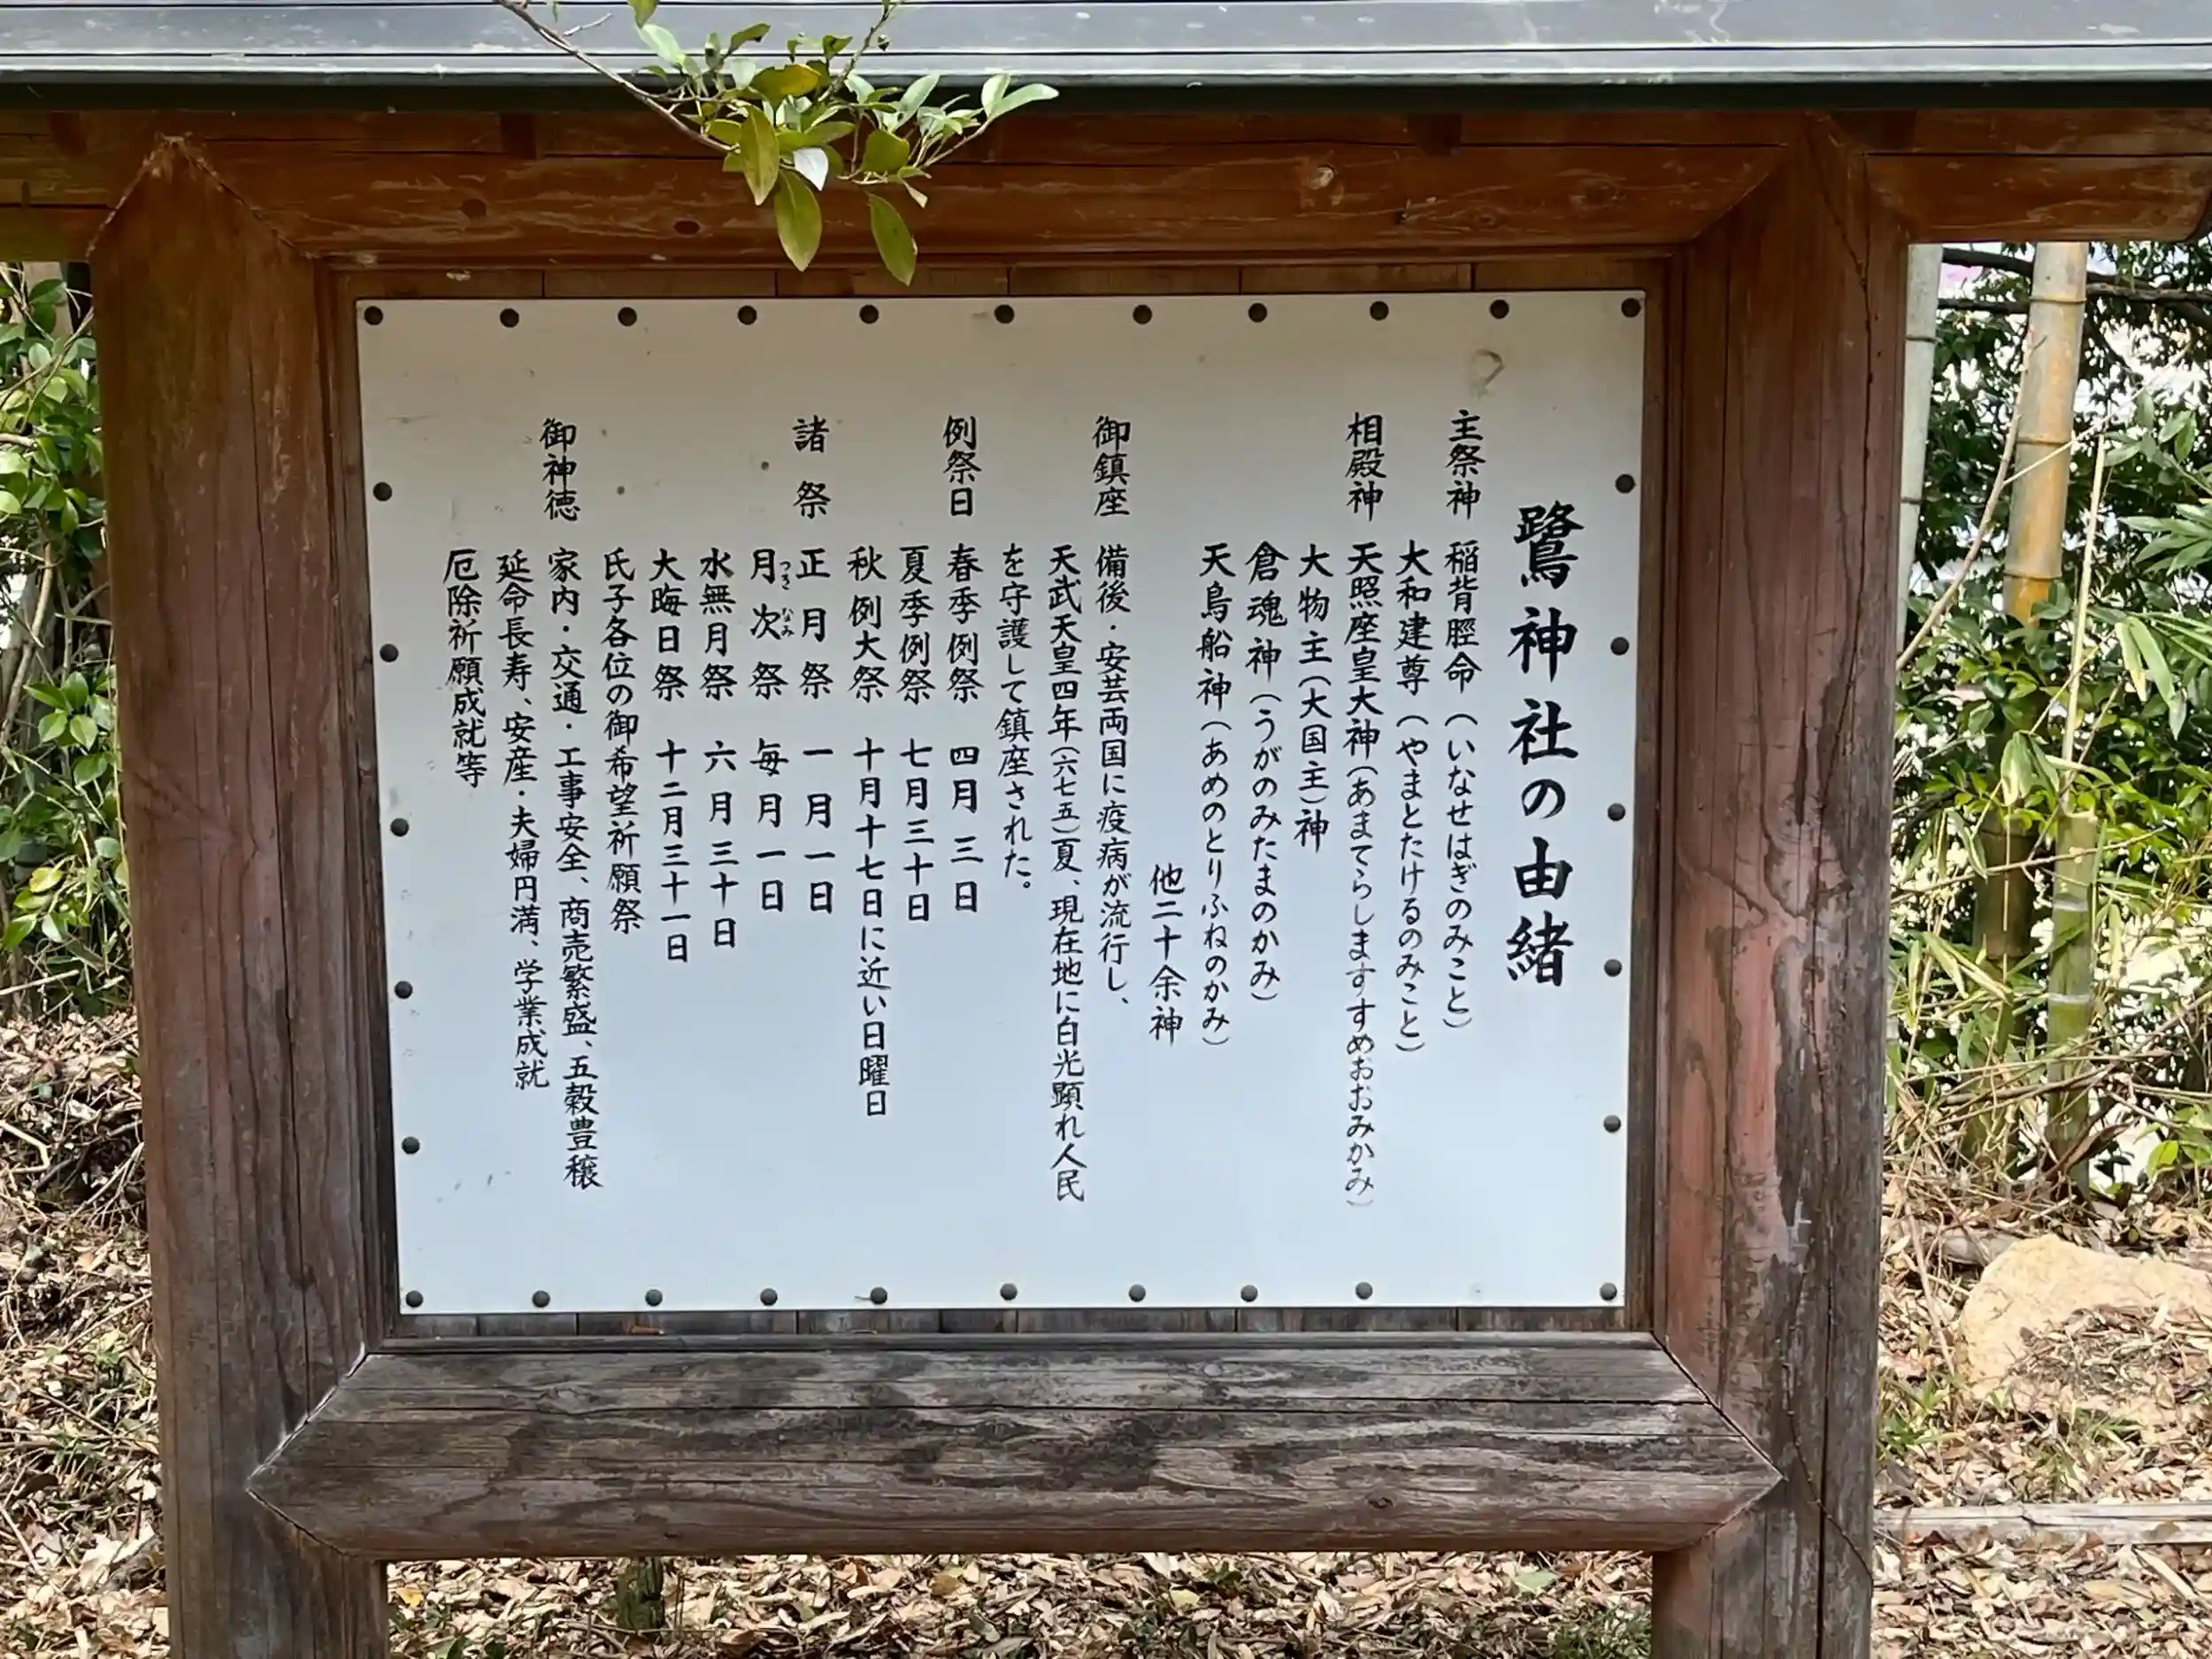 鷺神社の由緒
主祭神 稲背脛命(いなせはぎのみこと)
大和建尊(やまとたけるのみこと)
相殿神 天照座皇大神(あまてらしますすめおおみかみ)
大物主(大国主)神
倉魂神(うがのみたまのかみ)
天鳥船神(あめのとりふねのかみ)
他二十余神
御鎮座 備後・安芸両国に疫病が流行し、
天武天皇四年(六七五)夏、現在地に白光顕れ人民
を守護して鎮座された。
例祭日 春季例祭 四月三日
夏季例祭 七月三十日
秋例大祭 十月十七日に近い日曜日
諸祭 正月祭 一月一日
月次祭 毎月一日
つきなみ
水無月祭 六月三十日
大晦日祭 十二月三十一日
氏子各位の御希望祈願祭
御神徳 家内・交通・工事安全、商売繁盛、五穀豊穣
延命長寿、安産・夫婦円満、学業成就
厄除祈願成就等